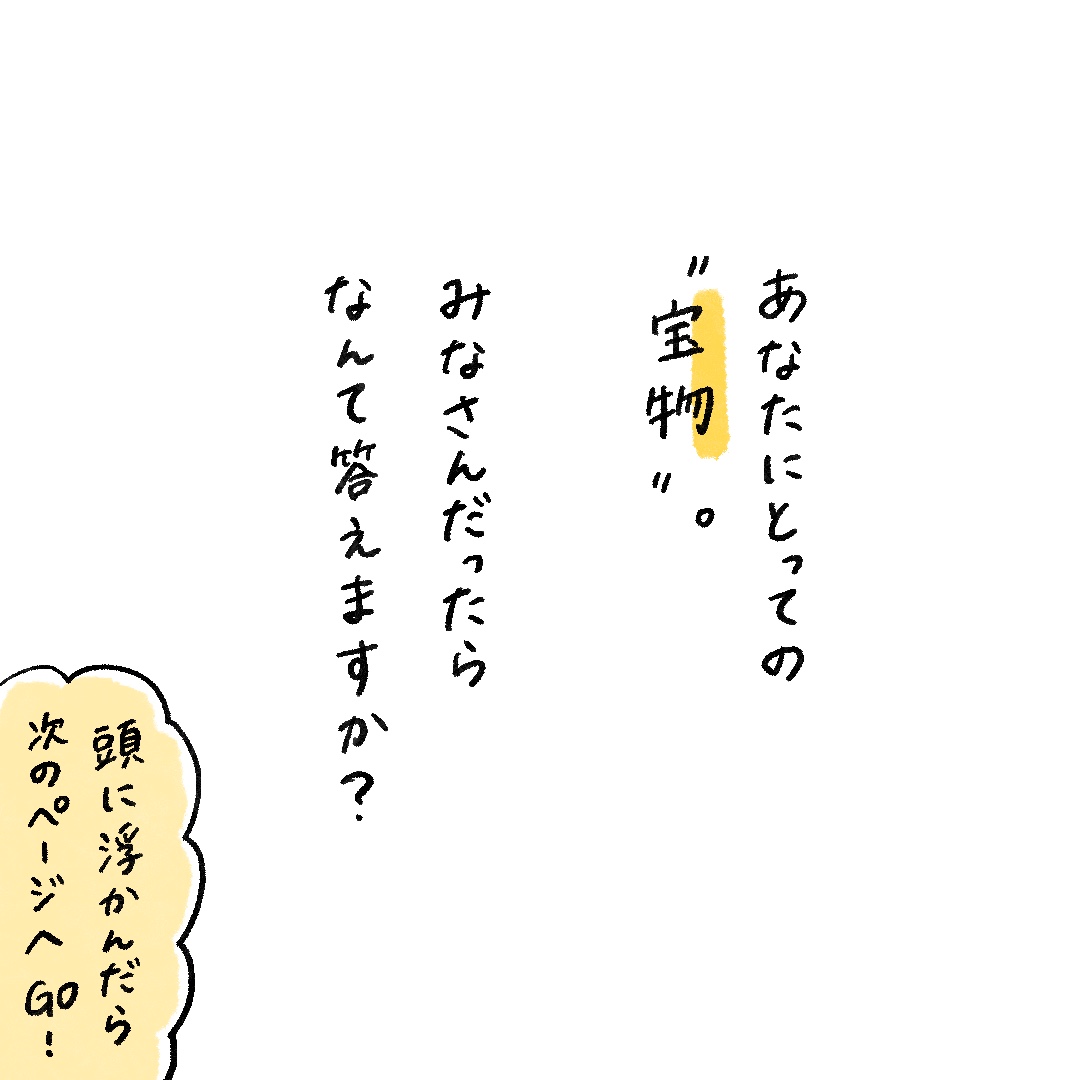 あなたにとっての
〝宝物〟。
みなさんだったら
なんて答えますか？
頭に浮かんだら
次のページへGO！